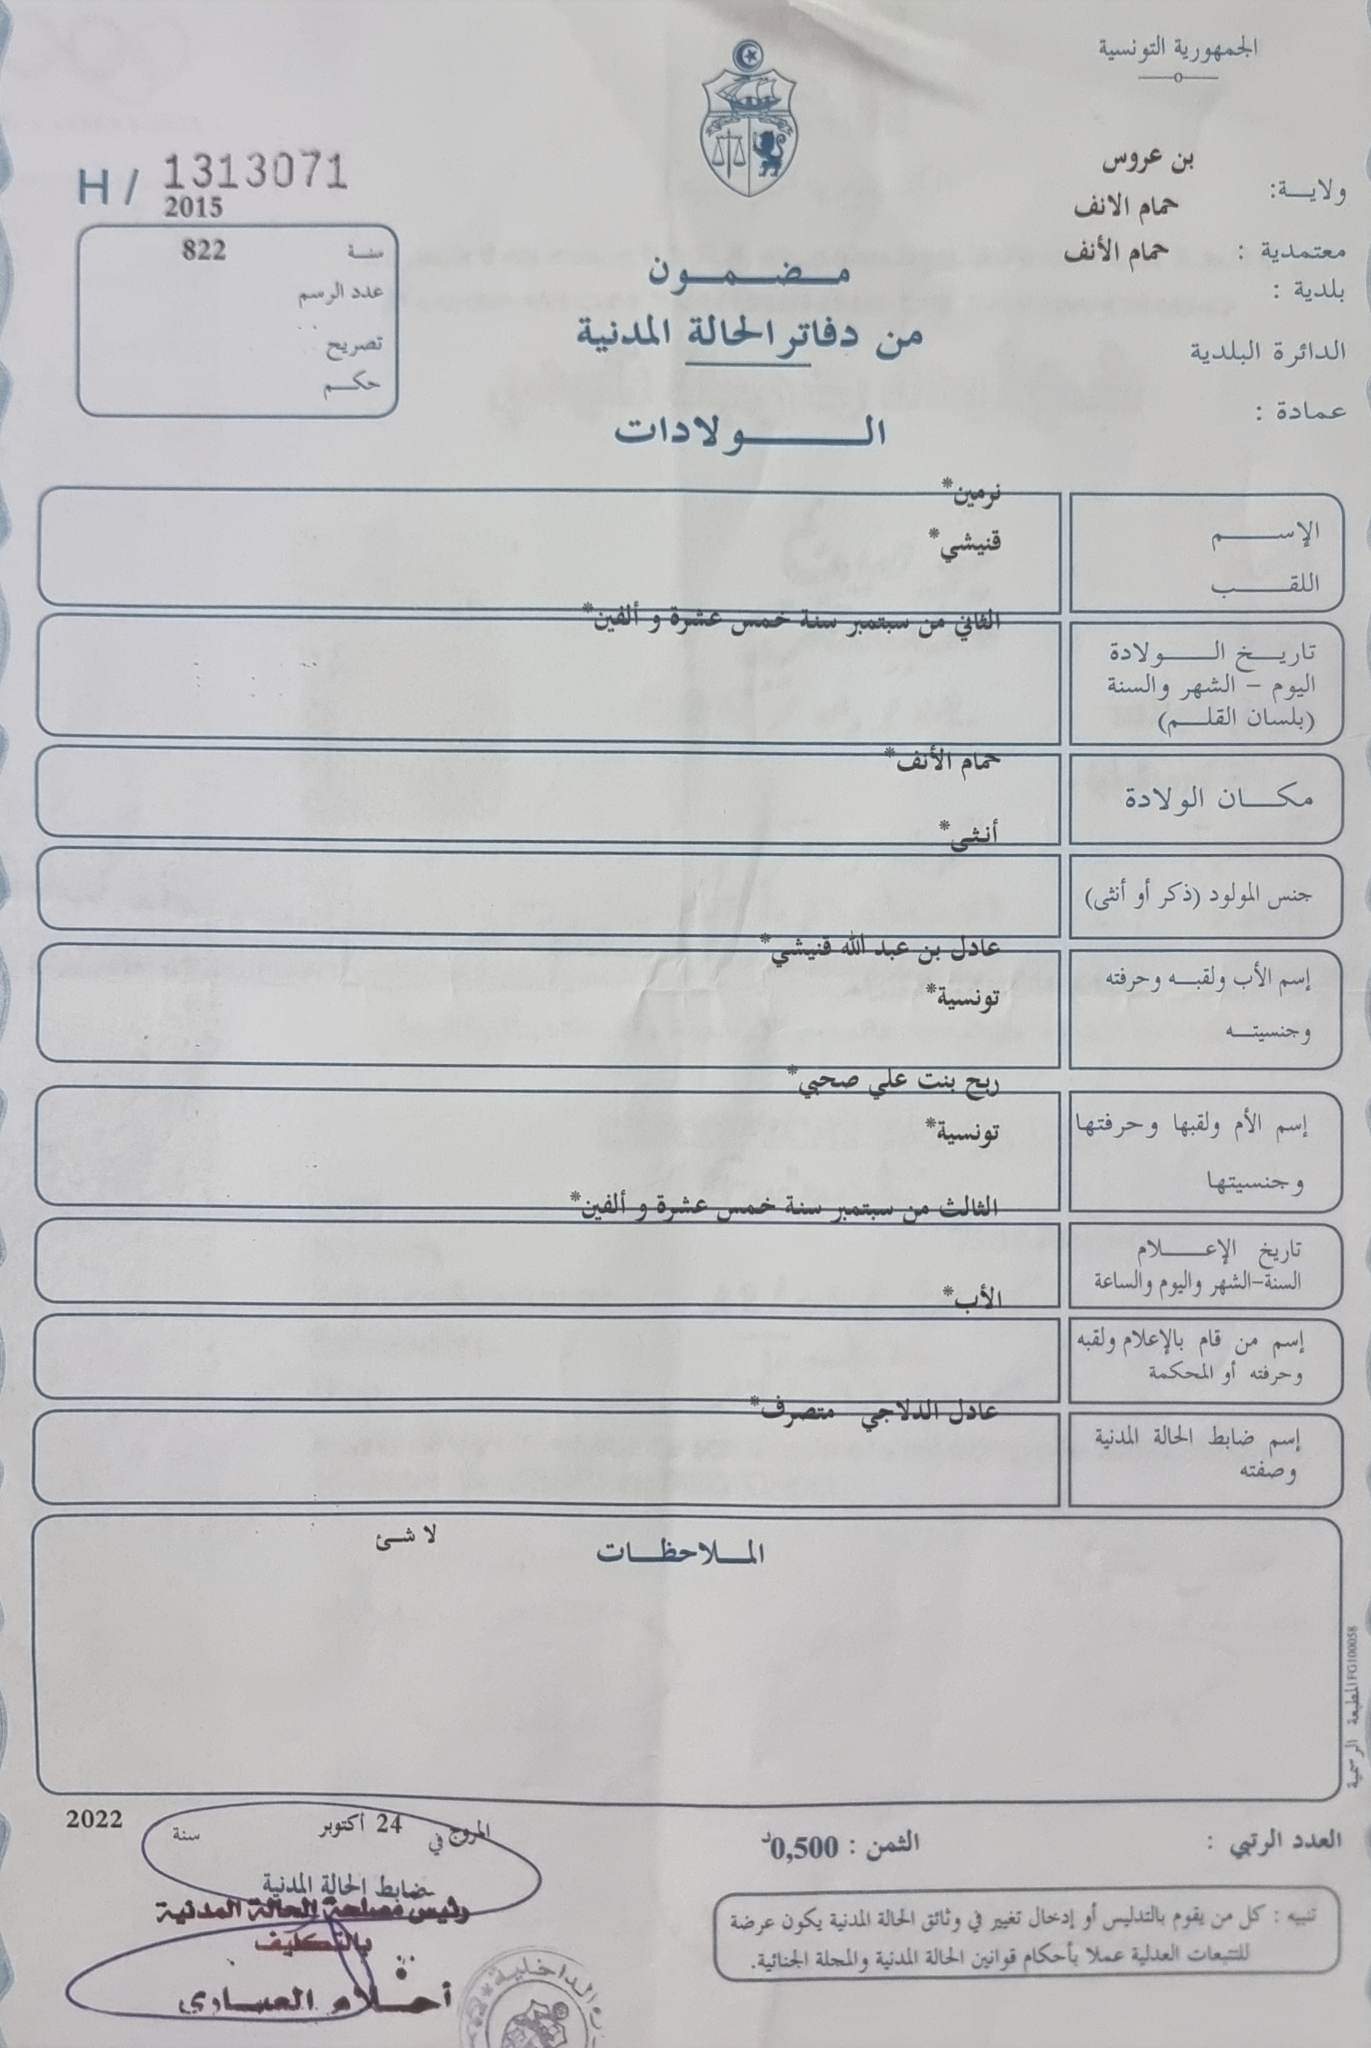 الجمهورية التونسية
بن عروس
ولايـــة:
حمام الانف
معتمدية :
حمام الأنف
بلدية :
الدائرة البلدية
عمادة :
H / 1313071
2015
سنة
822
عدد الرسم
تصريح
حكم
مـضـمـون
من دفاتر الحالة المدنية
الـــولادات
نرمين*
الإســـم
قنيشي*
اللقـــب
الثاني من سبتمبر سنة خمس عشرة و ألفين*
تاريـــخ الـــولادة
اليوم - الشهر والسنة
(بلسان القلـــم)
حمام الأنف*
مكـــان الولادة
أنثى*
جنس المولود (ذكر أو أنثى)
عادل بن عبد الله قنيشي*
إسم الأب ولقبـــه وحرفته
تونسية*
وجنسيتـــه
ربح بنت علي صحبي*
إسم الأم ولقبها وحرفتها
تونسية*
وجنسيتها
الثالث من سبتمبر سنة خمس عشرة و ألفين*
تاريخ الإعـــلام
السنة-الشهر واليوم والساعة
الأب*
إسم من قام بالإعلام ولقبه
وحرفته أو المحكمة
عادل الدلاجي متصرف*
إسم ضابط الحالة المدنية
وصفته
المـــلاحظـــات
لا شئ
المطبعة الرسمية FG100058
العدد الرتبي :
الثمن : 0,500د
المروج في 24 أكتوبر سنة 2022
ضابط الحالة المدنية
رئيس مصلحة الحالة المدنية
بالتكليف
أحـــلام العبـــاري
تنبيه : كل من يقوم بالتدليس أو إدخال تغيير في وثائق الحالة المدنية يكون عرضة
للتتبعات العدلية عملا بأحكام قوانين الحالة المدنية والمجلة الجنائية.
الداخلية